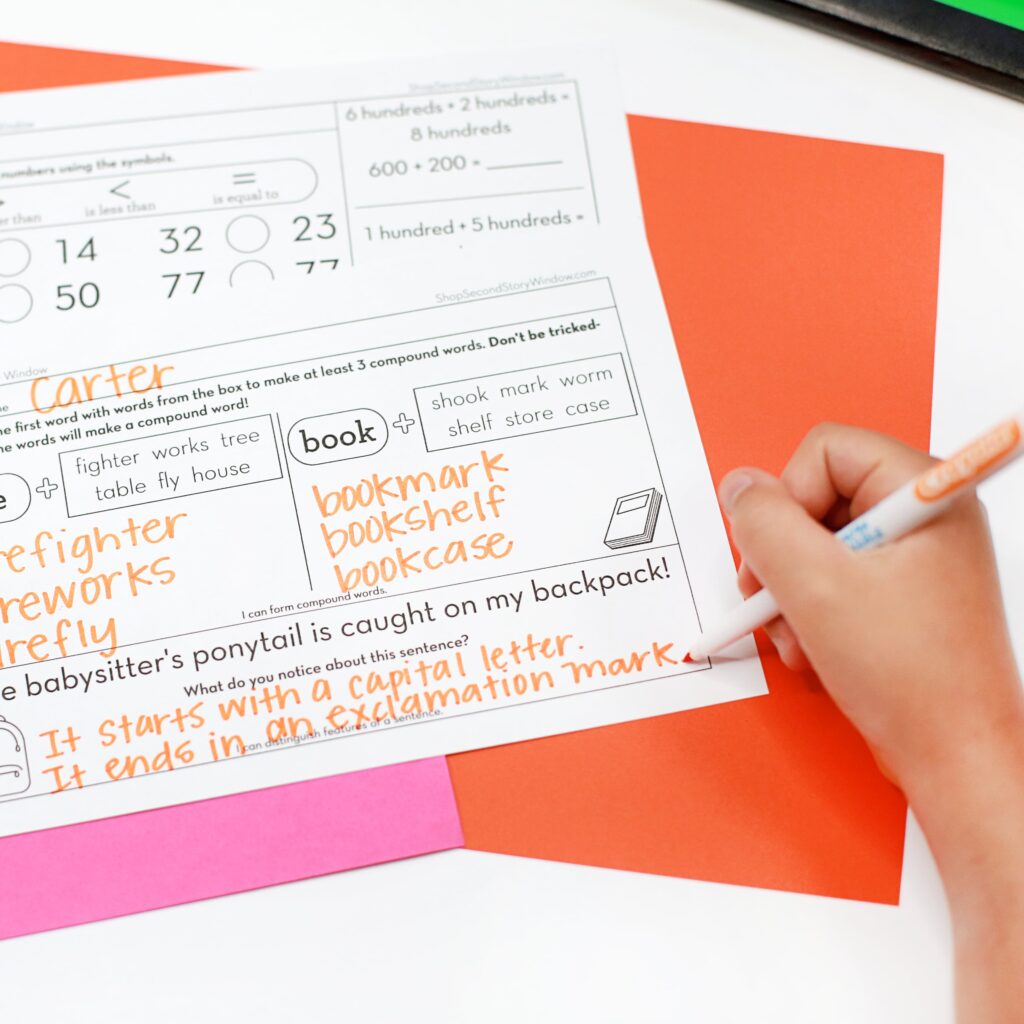 ShopSecondStoryWindow.com
Window
numbers using the symbols.
6 hundreds + 2 hundreds =
8 hundreds
600 + 200 = ______
1 hundred + 5 hundreds =
> < =
er than is less than is equal to
14 32 23
50 77 77
ShopSecondStoryWindow.com
Window
me Carter
he first word with words from the box to make at least 3 compound words. Don't be tricked-
he words will make a compound word!
e + fighter works tree
table fly house
refighter
reworks
irefly
book + shook mark worm
shelf store case
bookmark
bookshelf
bookcase
I can form compound words.
e babysitter's ponytail is caught on my backpack!
What do you notice about this sentence?
It starts with a capital letter.
It ends in an exclamation mark.
I can distinguish features of a sentence.